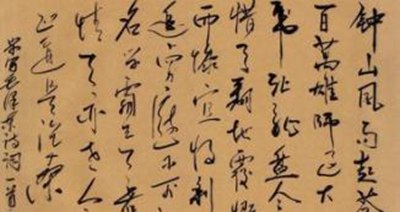 钟山风雨起苍
百萬雄師过大
虎踞龙盘今
惜天翻地覆慨
而慷宜将剩
追穷寇不可
名学霸王天若
情天亦老人
正道是沧桑
毛澤東诗词一首